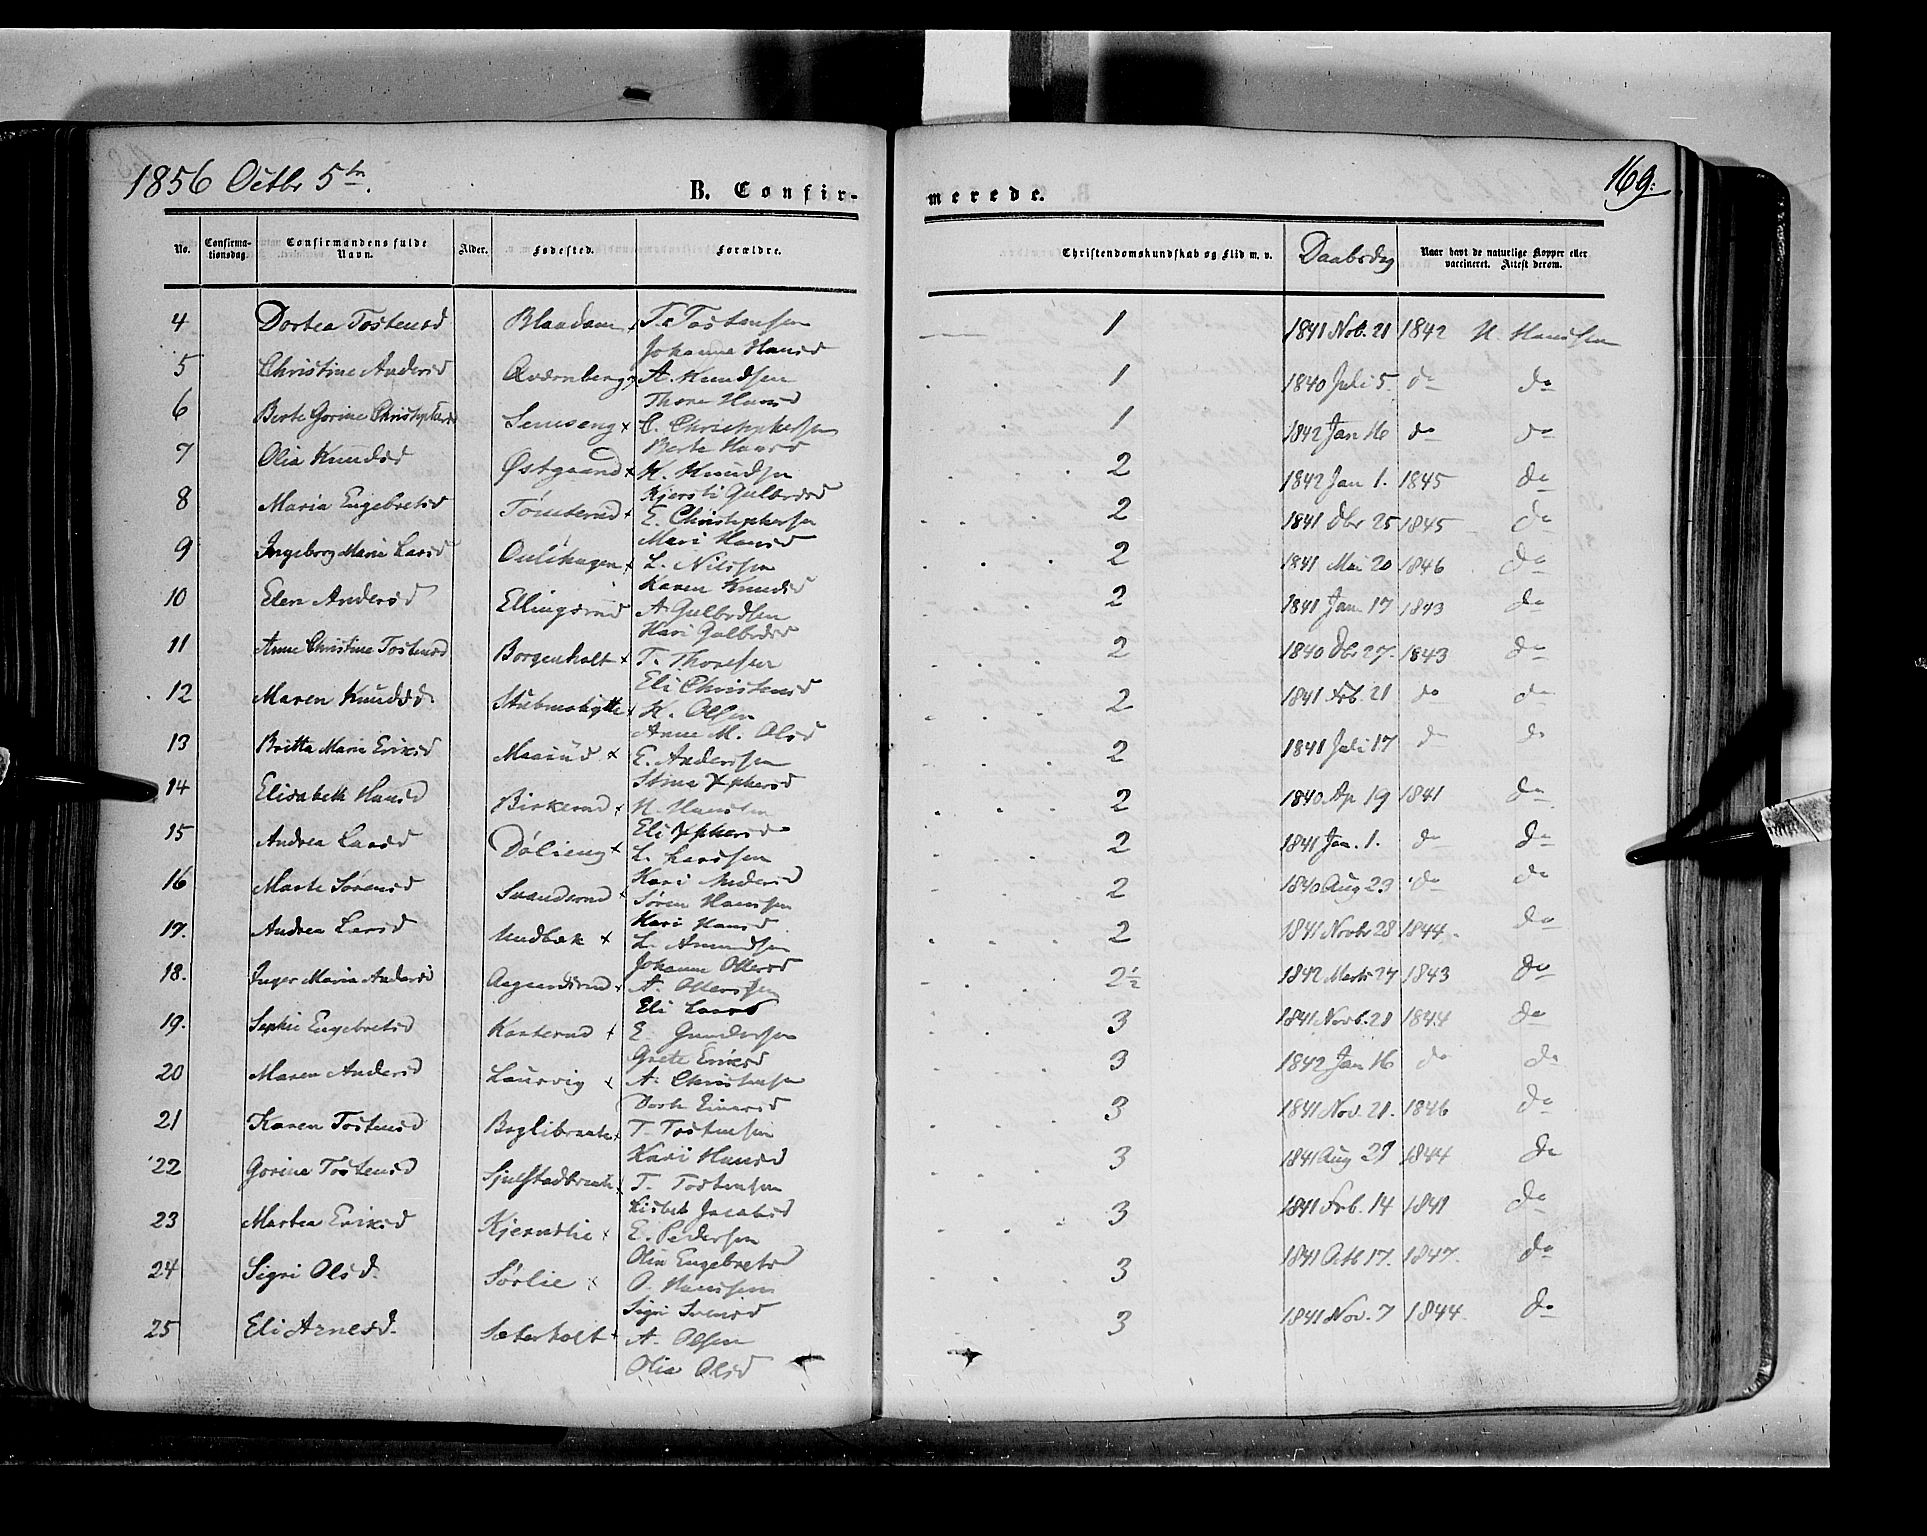 1856 Octbr 5te.
B. Confir-
merede.
169.
No. Confirma-tionsdag. Confirmandens fulde Navn. Alder. Fødested. Forældre. Christendomskundskab og Flid m. v. Daabsdag Naar havt de naturlige Kopper eller vaccineret. Attest derom.
4 Dortea Tostensd Blaadam T. Tostensen 1 1841 Nob. 21 1842 N. Hanssen
Johanne Hansd
5 Christine Andersd Qvernberg x A. Knudsen 1 1840 Juli 5 do do
Thore Hansd
6 Berte Gorine Christophersd Semseng x C. Christophersen 1 1842 Jan 16 do do
Berte Hansd
7 Olia Knudsd Østgaard x K. Knudsen 2 1842 Jan 1. 1845 do
Kjersti Gulbrdsd
8 Maria Engebretsd x E. Christophersen 2 1841 Dbr 25 1845 do
Mari Hansd
9 Ingeborg Marie Larsd x L. Nilssen 2 1841 Mai 20 1846 do
Karen Knudsd
10 Elen Andersd Ellingsrud A. Gulbrdsen 2 1841 Jan 17 1843 do
Kari Gulbrdsd
11 Anne Christine Tostensd Borgenholt x T. Thoresen 2 1840 Dbr 27. 1843 do
Eli Christensd
12 Maren Knudsd x K. Olsen 2 1841 Feb. 21 do do
Anne M. Olsd
13 Britta Marie Eriksd x E. Anderssen 2 1841 Juli 17 do do
Stina
14 Elisabeth Hansd Birkerud x H. Hanssen 2 1840 Ap 19 1841 do
Eli
15 Andrea Larsd Dølieng x L. Larssen 2 1841 Jan. 1. do do
Kari Andersd
16 Marte Sørensd x Søren Hanssen 2 1840 Aug 23 do do
Kari Hansd
17. Andrea Larsd x L. Amundsen 2 1841 Novbr 28 1844. do
Johanne Ottersd
18. Inger Maria Andersd x A. Otterssen 2½ 1842 Marts 24 1843 do
Eli Larsd
19. Sophie Engebretsd x E. Gundersen 3 1841 Novb. 21 1844 do
Grete Eriksd
20 Maren Andersd Laurvig x A. Christensen 3 1842 Jan 16 do do
Dorte Einersd
21 Karen Tostensd x T. Tostensen 3 1841 Nov. 21. 1846 do
Kari Hansd
22 Gorine Tostensd x T. Tostensen 3 1841 Aug 29 1844 do
Lisbet Jacobsd
23 Martea Eriksd Kjernslie x E. Pedersen 3 1841 Feb. 14 1841 do
Olia Engebretsd
24 Sigri Olsd. Sørlie x O. Hanssen 3 1841 Octb 17. 1847. do
Sigri
25 Eli Arnesd. Sæterholt x A. Olsen 3 1841 Nov. 7 1844 do
Olia Olsd